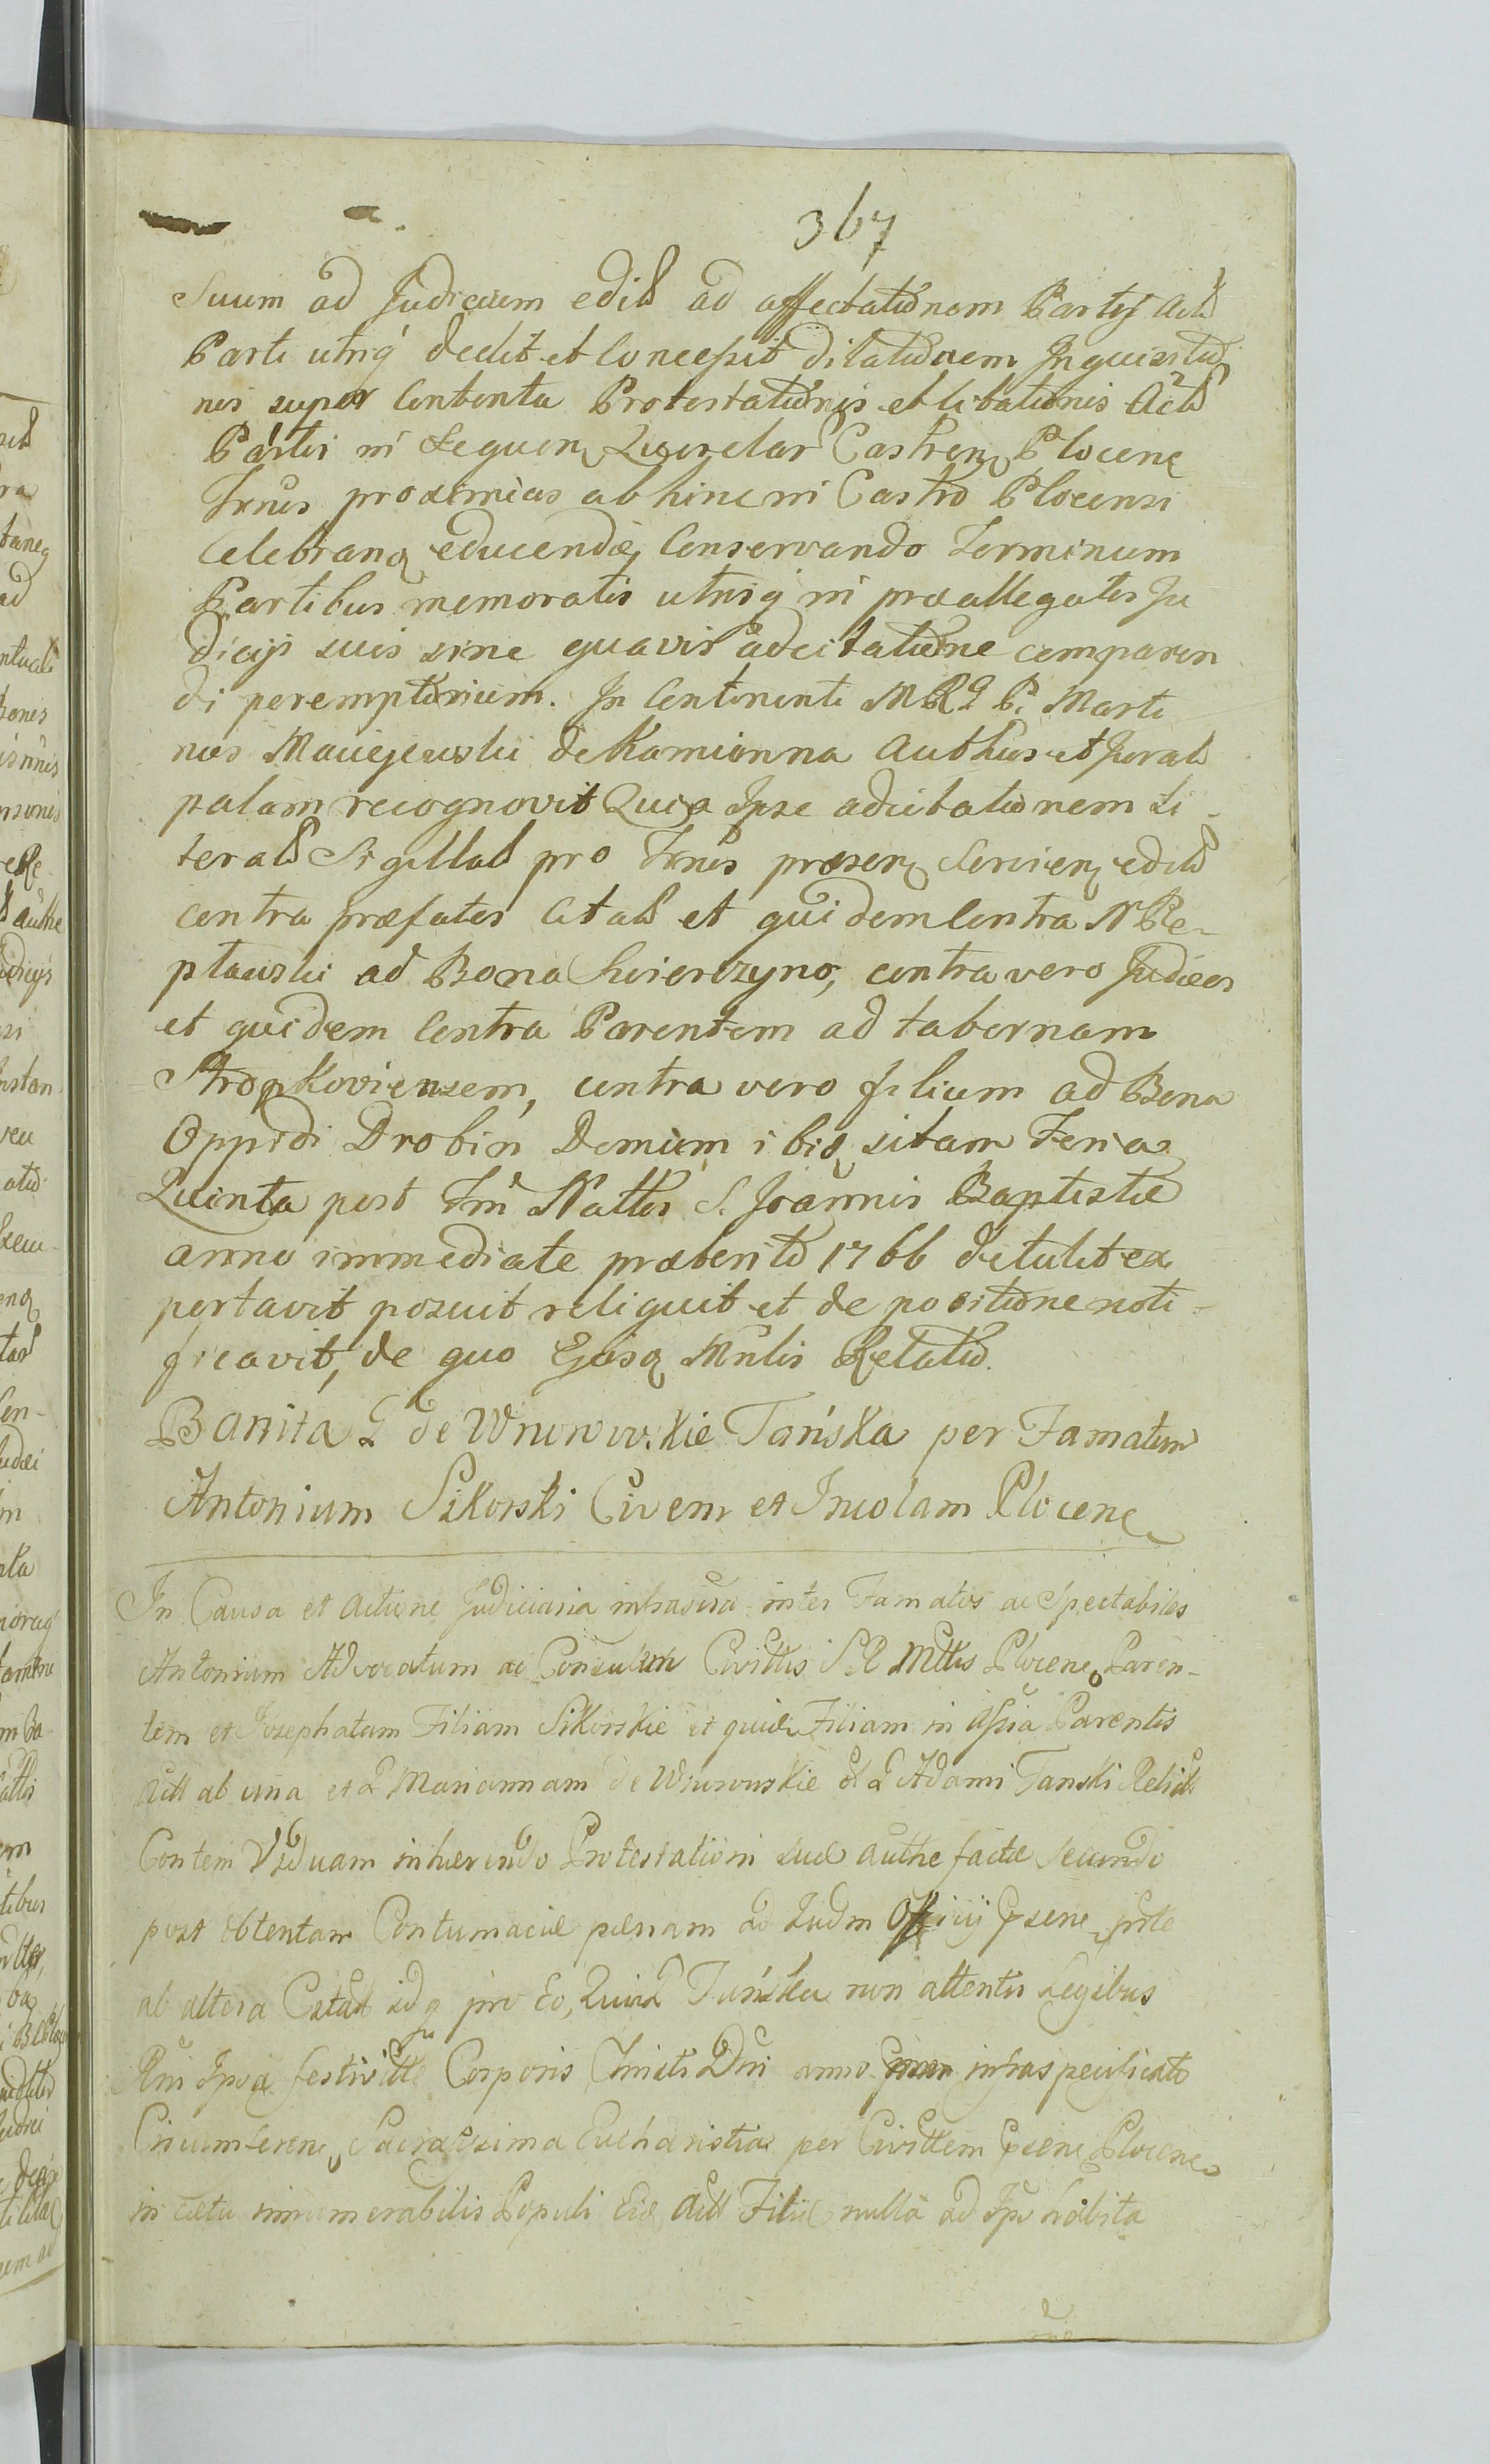 367
Suum ad Judicium edit ad affectationem Partis Act
Parti utriq dedit et Concessit dilationem Inquisitio
nis super Contenta Protestationis et Citationis Act
Partis in Sequen Querelar Castren Plocen
Trnis proximias abhinc in Castro Plocensi
Celebran educendæ, Conservando Terminum
Partibus memoratis utrisq in præallegatis Ju
dicijs suis sine quavis adcitatione comparen
di peremptorium. In Continenti MRG P. Marti
nus Maciejewski de Kamionna Authus et Jurat
palam recognovit Quia Ipse adcitationem Li
terat Sigillat pro Trnis præsen Servien edit
contra præfatos Citat et quidem Contra N Re-
ptawski ad Bona Swierczyno, contra vero Judæos
et quidem Contra Parentem ad tabernam
Stropkoviensem, contra vero filium ad Bona
Oppidi Drobin Domum ibid sitam Feria
Quinta post Fm Nattis S. Joannis Baptistæ
anno immediate præterito 1766 detulit ex
portavit posuit reliquit et de positione noti-
ficavit, de quo Ejusq Mnlis Relatio.
Banita G de Wrunowskie Tańska per Famatum
Antonium Sikorski Civem et Incolam Plocen
In Causa et Actione Judiciaria infrascra inter Famatos ac Spectabiles
Antonium Advocatum ac Consulem Civittis S R Mttis Plocen Paren-
tem et Josephatam Filiam Sikorskie et quid Filiam in Assia Parentis
Act ab una et G Mariannam de Wrunowskie olt G Adami Tanski Relict
Contem Viduam inhærendo Protestationi suæ authe factæ secundo
post obtentam Contumaciæ pænam ad Judm Officij Psene
ab altera Citat idq pro Eo, Quia G Tańska non attentis Legibus
Rni Ipsa festivitte Corporis Christi Dni anno infraspecificato
Circumferen Sacratissima Eucharistia per Civittem Psene Plocen
in cætu innumerabilis Populi Eid Act Filiæ nulla ad Ips habita